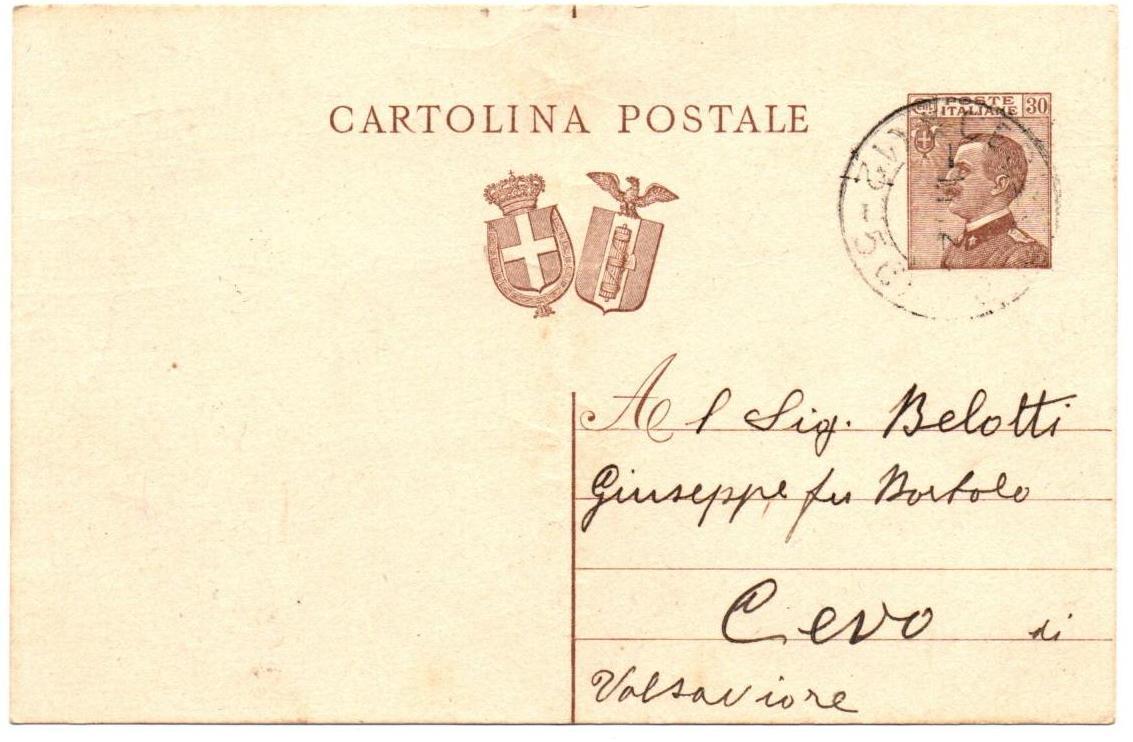 CARTOLINA POSTALE
POSTE
ITALIANE
30
Al Sig. Belotti
Giuseppe fu Bortolo
Cevo di
Valsaviore